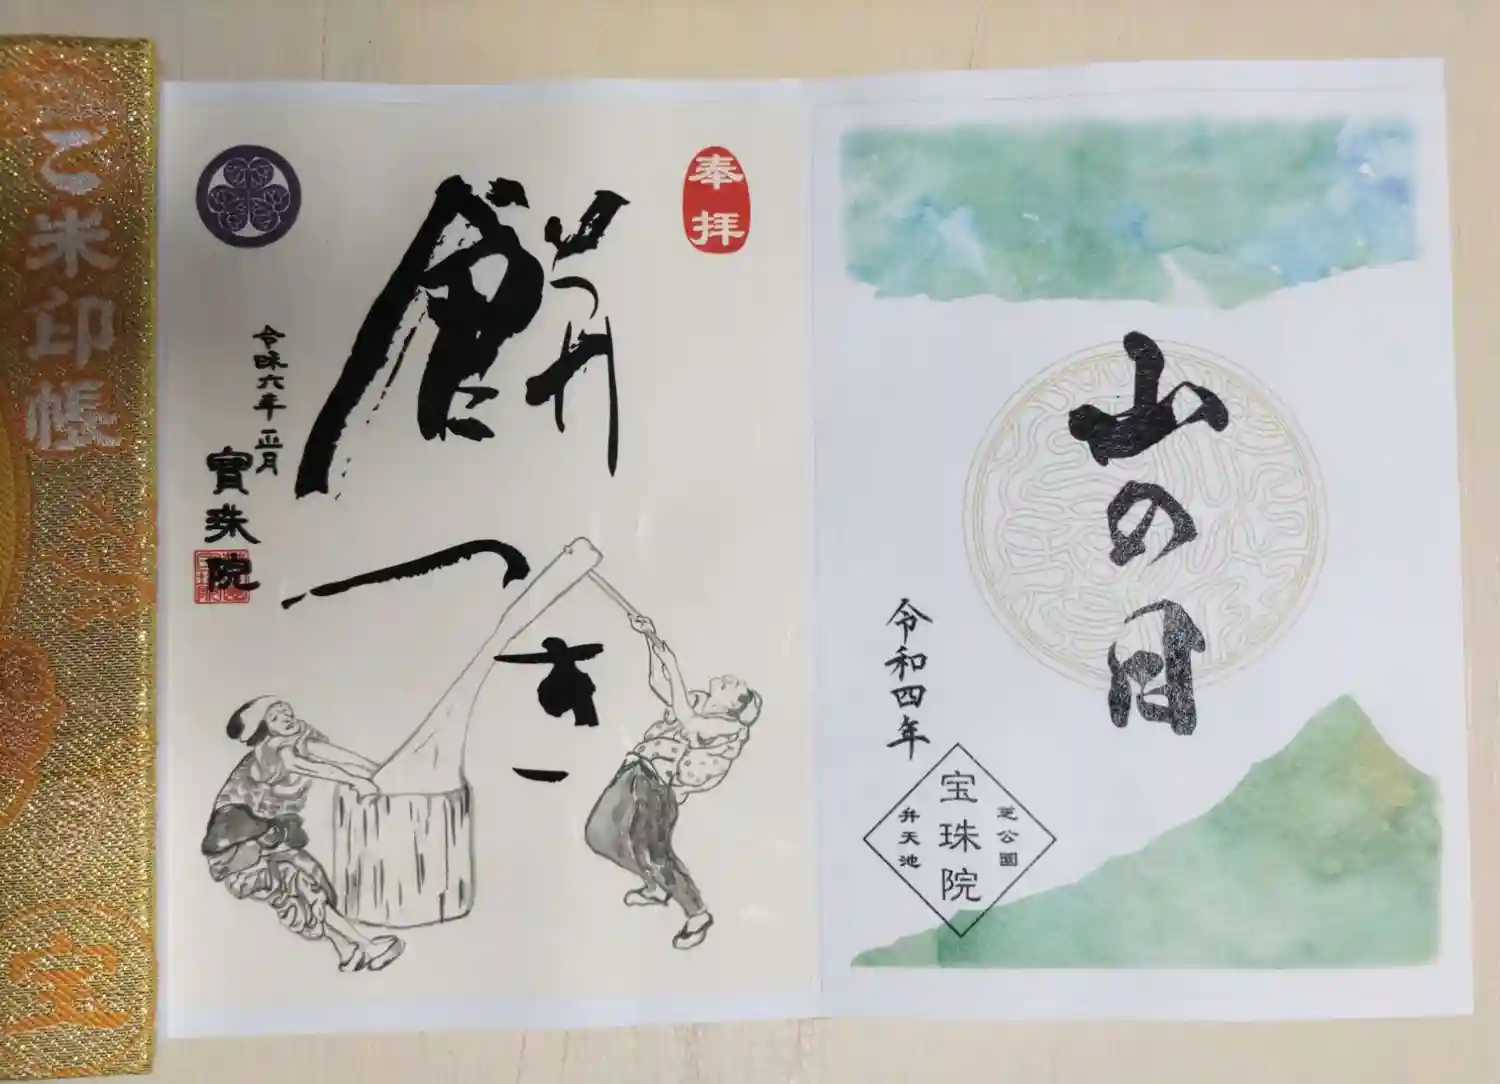 ご朱印帳
奉拝
餅つき
令和六年正月
寳珠院
山の日
令和四年
芝公園
宝珠院
弁天池